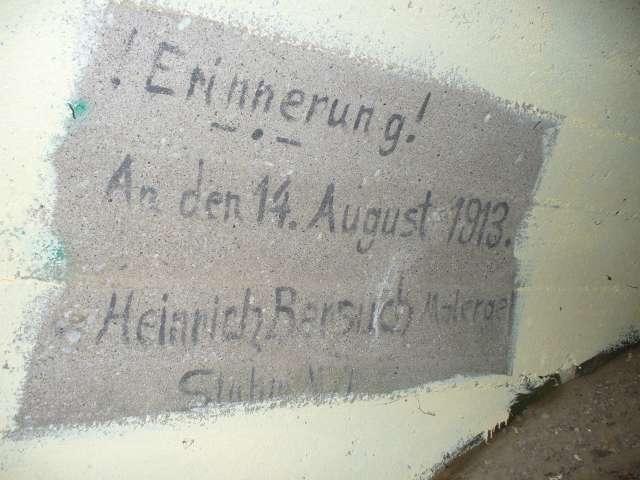 ! Erinnerung!
An den 14. August 1913.
Heinrich Barsuch